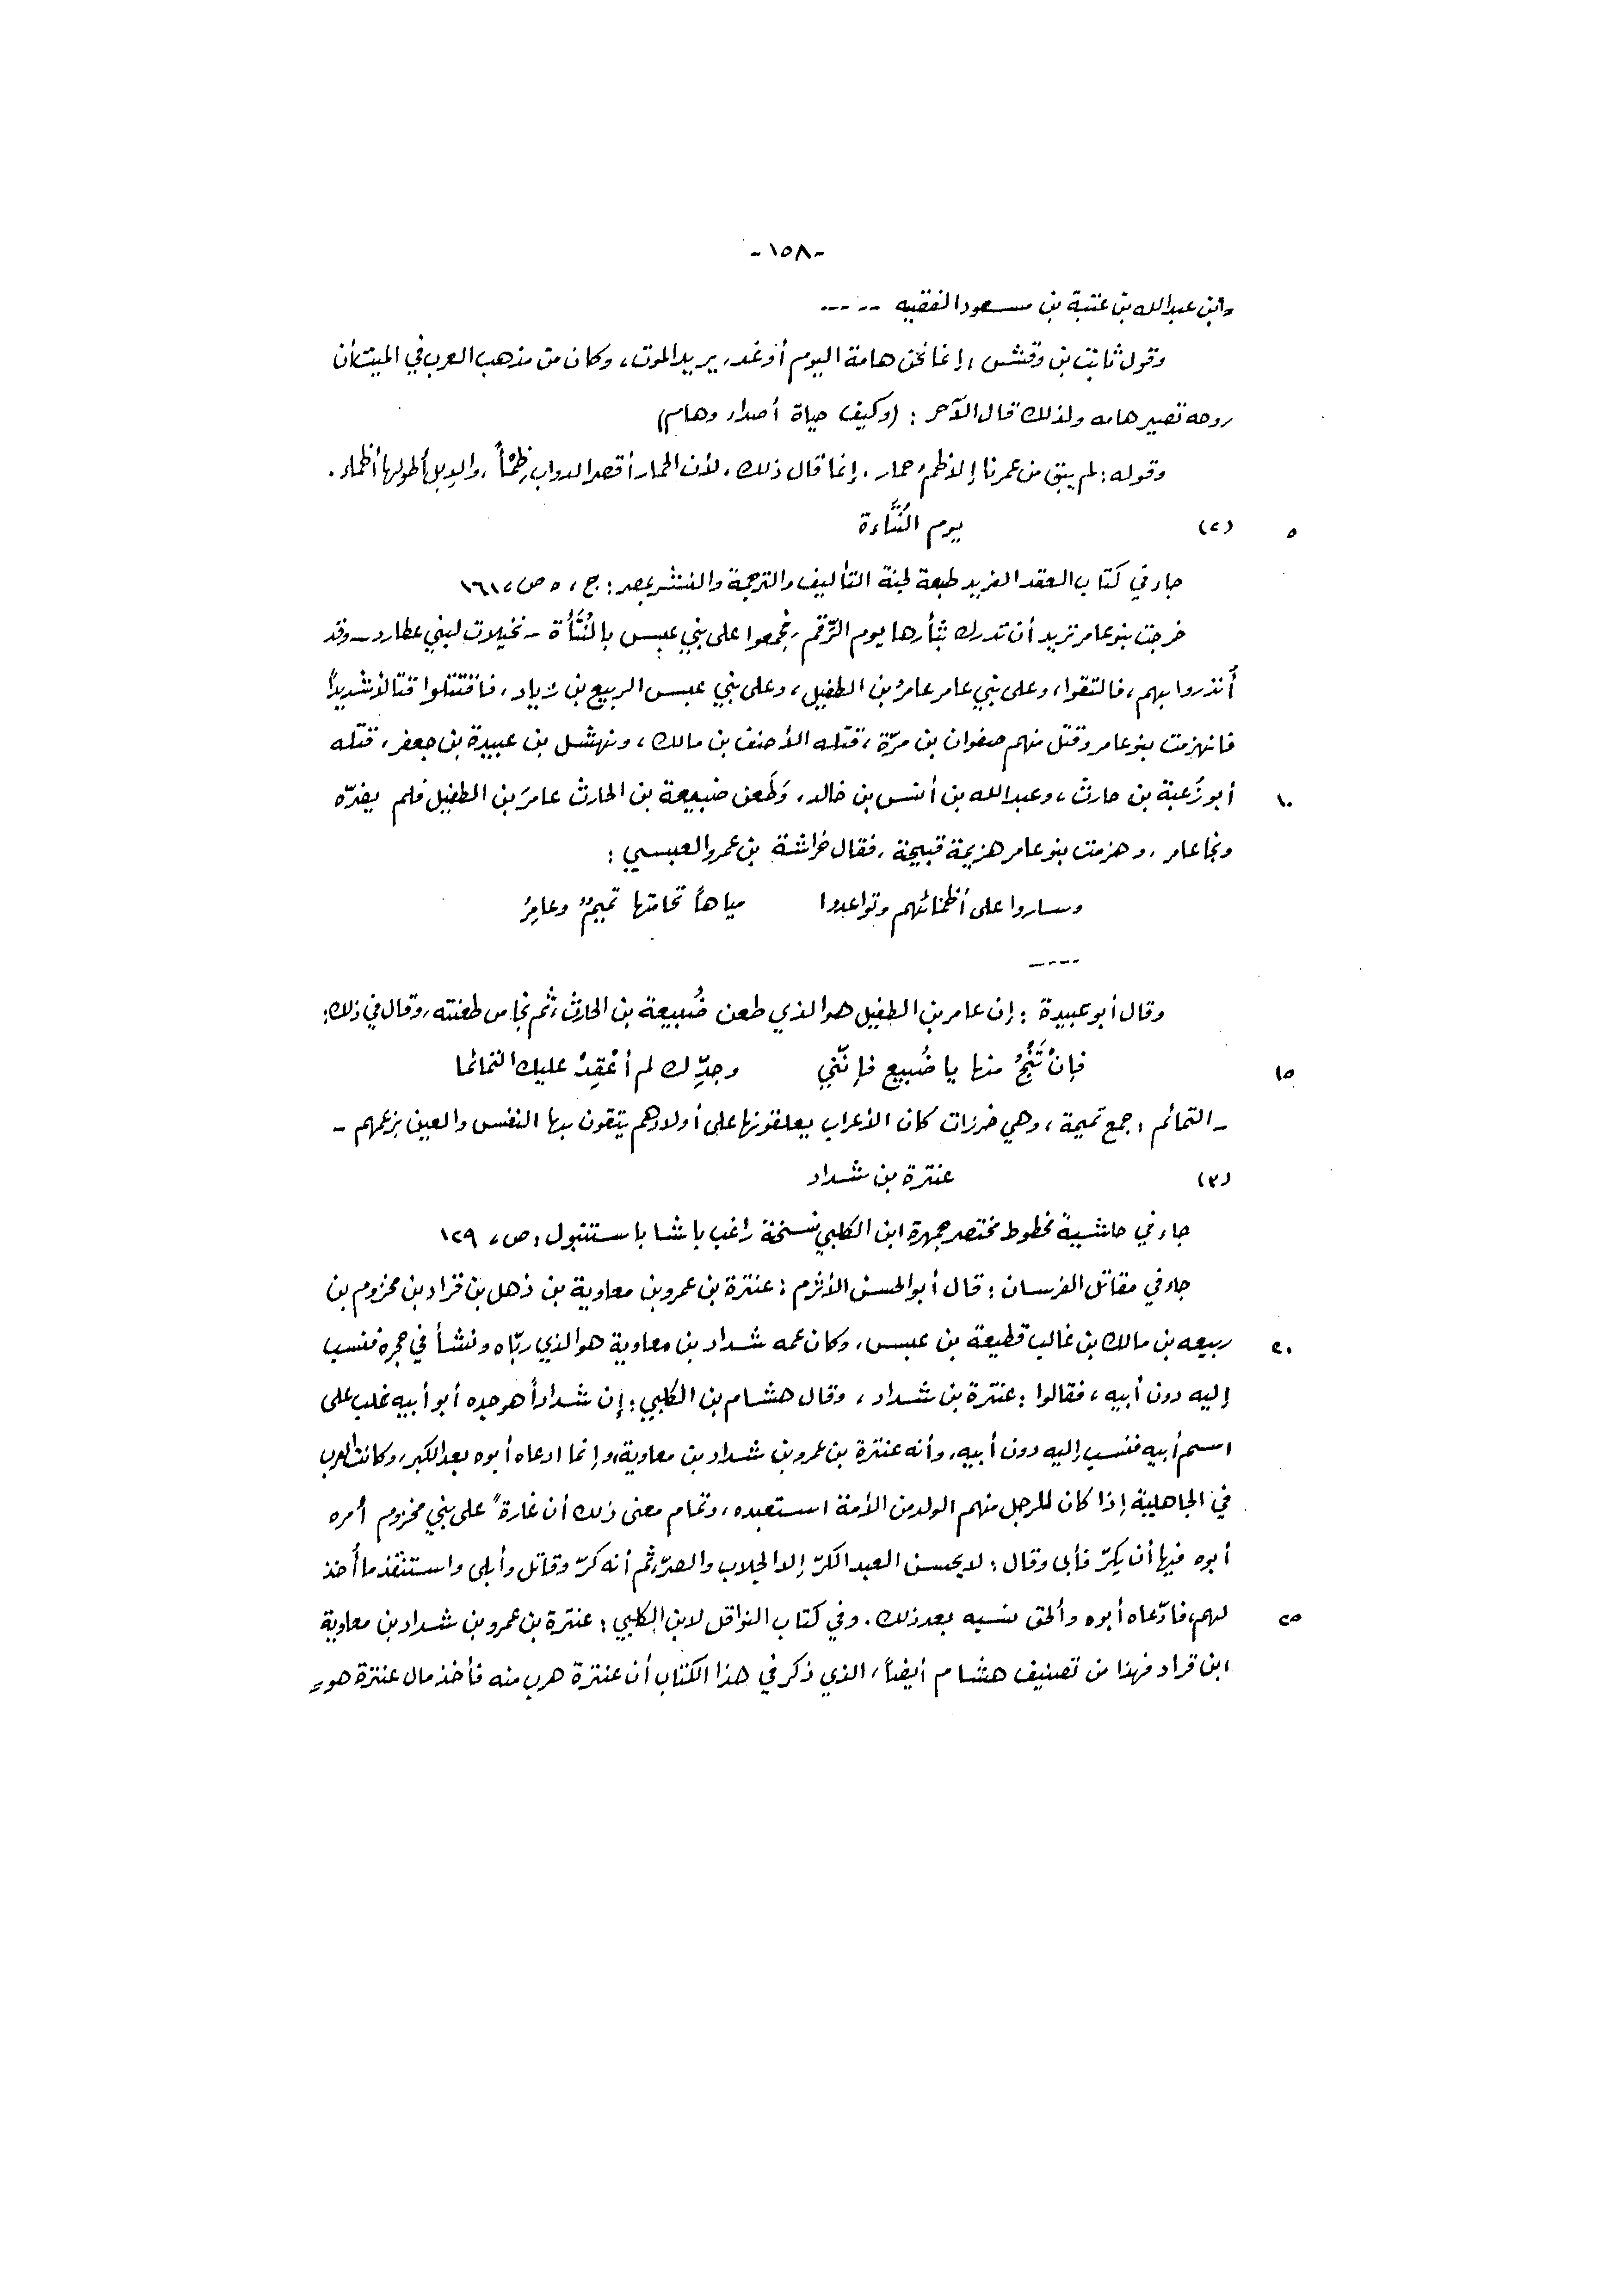 -١٥٨-
وابن عبدالله بن عتبة بن مسعود الفقيه -----
وقول ثابت بن وقش، إنما نحن هامة اليوم أوغد، يريد الموت، وكان من مذهب العرب في الميت أن
روحه تصير هامه ولذلك قال الآخر : (وكيف حياة أصداء وهام)
وقوله : لم يبق من عمرنا إلا ظمء حمار. إنما قال ذلك، لأن الحمار أقصر الدواب ظمأً، والإبل أطولها أظماء.
٥ (٢) يوم النُّتَاءة
جاء في كتاب العقد الفريد طبعة لجنة التأليف والترجمة والنشر بمصر: ج، ٥ ص، ١٦١
خرجت بنوعامر تريد أن تدرك بثأرها يوم الرَّقم، فجمعوا على بني عبس بالنُّتَأة - نخيلات لبني عطارد - وقد
أُنذروا بهم، فالتقوا، وعلى بني عامر عامرُ بن الطفيل، وعلى بني عبس الربيع بن زياد، فاقتتلوا قتالاً شديداً
فانهزمت بنوعامر وقتل منهم صفوان بن مرّة، قتله الأحنف بن مالك، ونهشل بن عبيدة بن جعفر، قتله
١٠ أبو زُعبة بن حارث، وعبدالله بن أنس بن خالد، وَطَعن ضبيعة بن الحارث عامرَ بن الطفيل فلم يضرّه
ونجا عامر، وهزمت بنوعامر هزيمة قبيحة، فقال خراشة بن عمرو العبسي :
وساروا على أظمائهم وتواعدوا مياهاً تحامتها تميمٌ وعامِرُ
-----
وقال أبوعبيدة : إن عامر بن الطفيل هوالذي طعن ضُبيعة بن الحارث، ثم نجا من طعنته، وقال في ذلك:
١٥ فإنْ تَنْجُ منها يا ضُبيع فإنّني وجدِّك لم أعْقِدْ عليك التمائما
- التمائم : جمع تميمة، وهي خرزات كان الأعراب يعلقونها على أولادهم يتقون بها النفس والعين بزعمهم -
(٣) عنترة بن شداد
جاء في حاشية مخطوط مختصر جمهرة ابن الكلبي نسخة راغب باشا باستنبول : ص، ١٢٩
جاء في مقاتل الفرسان : قال أبوالحسن الأثرم : عنترة بن عمروبن معاوية بن ذهل بن قراد بن مخزوم بن
٢٠ ربيعه بن مالك بن غالب قطيعة بن عبس، وكان عمه شداد بن معاوية هوالذي ربّاه ونشأ في حجره فنسب
إليه دون أبيه، فقالوا : عنترة بن شداد، وقال هشام بن الكلبي : إن شداداً هوجده أبو أبيه غلب على
اسم أبيه فنسب إليه دون أبيه، وأنه عنترة بن عمروبن شداد بن معاوية، وإنما ادعاه أبوه بعد الكبر، وكانت العرب
في الجاهلية إذا كان للرجل منهم الولد من الأمة استعبده، وتمام معنى ذلك أن غارة على بني مخزوم أمره
أبوه فيها أن يكرّ فأبى وقال : لا يحسن العبد الكرّ إلا الحلاب والصرّ، ثم أنه كرّ وقاتل وأبلى واستنقذ ما أُخذ
٢٥ لهم، فادّعاه أبوه وألحق نسبه بعد ذلك. وفي كتاب النواقل لابن الكلبي : عنترة بن عمروبن شداد بن معاوية
ابن قراد فهذا من تصنيف هشام أيضاً، الذي ذكر في هذا الكتاب أن عنترة هرب منه فأخذ مال عنترة هو =